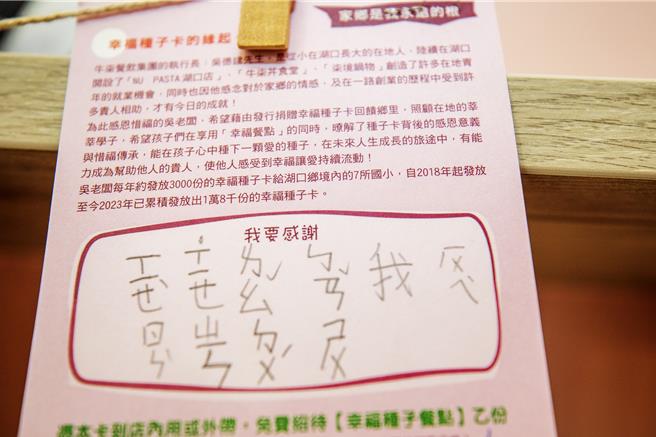 家鄉是我永遠的根
幸福種子卡的緣起
牛柒餐飲集團的執行長：吳德建先生，是從小在湖口長大的在地人，陸續在湖口
開設了「NU PASTA湖口店」、「牛柒丼食堂」、「柒境鍋物」創造了許多在地青
年的就業機會，同時也因他感念對於家鄉的情感，及在一路創業的歷程中受到許
多貴人相助，才有今日的成就！
為此感恩惜福的吳老闆，希望藉由發行捐贈幸福種子卡回饋鄉里，照顧在地的莘
莘學子，希望孩子們在享用「幸福餐點」的同時，瞭解了種子卡背後的感恩意義
與惜福傳承，能在孩子心中種下一顆愛的種子，在未來人生成長的旅途中，有能
力成為幫助他人的貴人，使他人感受到幸福讓愛持續流動！
吳老闆每年約發放3000份的幸福種子卡給湖口鄉境內的7所國小，自2018年起發放
至今2023年已累積發放出1萬8千份的幸福種子卡。
我要感謝
ㄒㄧㄝ ˙ㄒㄧㄝ ㄌㄠˇ ㄅㄢˇ 我 ㄏㄨㄟˋ
憑本卡到店內用或外帶，免費招待【幸福種子餐點】乙份